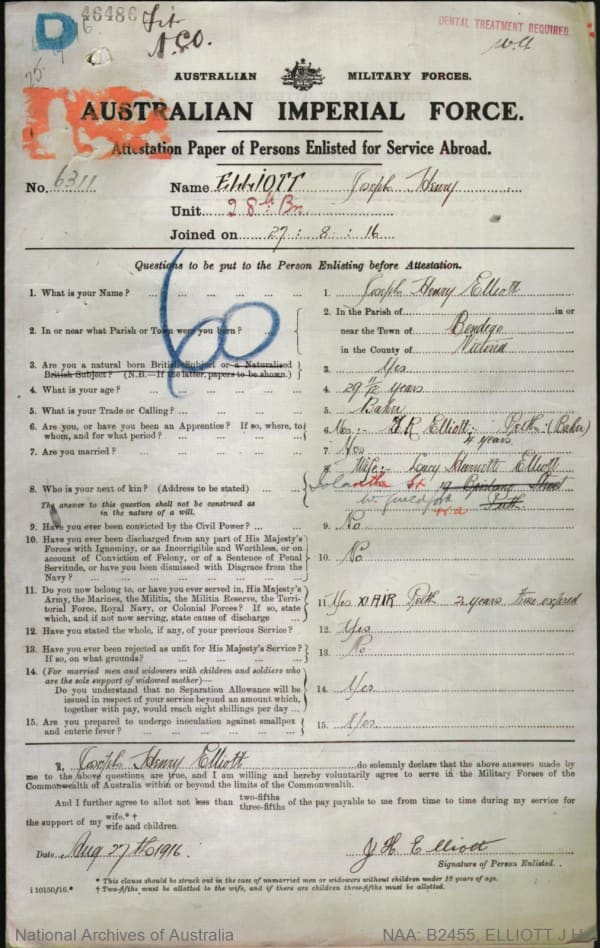 46486
Fit
N.C.O.
D
DENTAL TREATMENT REQUIRED
W.A
AUSTRALIAN MILITARY FORCES.
AUSTRALIAN IMPERIAL FORCE.
Attestation Paper of Persons Enlisted for Service Abroad.
No. 6311 Name ELLIOTT Joseph Henry
Unit 28th Bn
Joined on 27 : 8 : 16
Questions to be put to the Person Enlisting before Attestation.
1. What is your Name? ... 1. Joseph Henry Elliott
2. In or near what Parish or Town were you born? ... 2. In the Parish of in or
near the Town of Bendigo
in the County of Victoria
3. Are you a natural born British Subject or a Naturalised
British Subject? (N.B.—If the latter, papers to be shown.) 3. Yes
4. What is your age? ... 4. 29 years
5. What is your Trade or Calling? ... 5. Baker
6. Are you, or have you been an Apprentice? If so, where, to
whom, and for what period? ... 6. Yes :- Elliott :- Perth (Baker)
4 years
7. Are you married? ... 7. Yes
8. Who is your next of kin? (Address to be stated) ... 8. Wife :- Lucy Elliott
Iolanthe St Street
W. Guildford Perth
W.A
The answer to this question shall not be construed as
in the nature of a will.
9. Have you ever been convicted by the Civil Power? ... 9. No
10. Have you ever been discharged from any part of His Majesty's
Forces with Ignominy, or as Incorrigible and Worthless, or on
account of Conviction of Felony, or of a Sentence of Penal
Servitude, or have you been dismissed with Disgrace from the
Navy? ... 10. No
11. Do you now belong to, or have you ever served in, His Majesty's
Army, the Marines, the Militia, the Militia Reserve, the Terri-
torial Force, Royal Navy, or Colonial Forces? If so, state
which, and if not now serving, state cause of discharge ... 11. Yes XI AIR Perth 2 years time expired
12. Have you stated the whole, if any, of your previous Service? 12. Yes
13. Have you ever been rejected as unfit for His Majesty's Service?
If so, on what grounds? ... 13. No
14. (For married men and widowers with children and soldiers who
are the sole support of widowed mother)—
Do you understand that no Separation Allowance will be
issued in respect of your service beyond an amount which,
together with pay, would reach eight shillings per day ... 14. Yes
15. Are you prepared to undergo inoculation against smallpox
and enteric fever? ... 15. Yes
60
I, Joseph Henry Elliott do solemnly declare that the above answers made by
me to the above questions are true, and I am willing and hereby voluntarily agree to serve in the Military Forces of the
Commonwealth of Australia within or beyond the limits of the Commonwealth.
And I further agree to allot not less than two-fifths
three-fifths of the pay payable to me from time to time during my service for
the support of my wife.* †
wife and children.
Date Aug 27th 1916. J H Elliott
Signature of Person Enlisted.
* This clause should be struck out in the case of unmarried men or widowers without children under 18 years of age.
i 10150/16.* † Two-fifths must be allotted to the wife, and if there are children three-fifths must be allotted.
National Archives of Australia NAA: B2455, ELLIOTT J H